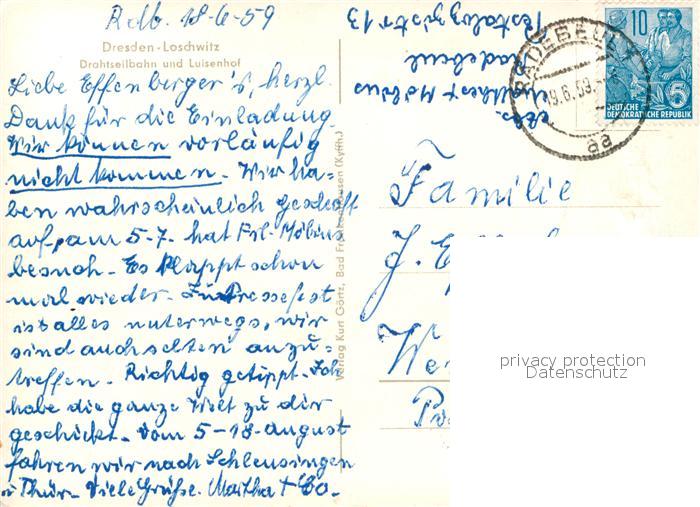 Rdb. 18-6-59
Dresden-Loschwitz
Drahtseilbahn und Luisenhof
Liebe Effenberger's, herzl.
Dank für die Einladung.
Wir können vorläufig
nicht kommen. Wir ha-
ben wahrscheinlich geschäft
auf, am 5-7. hat Frl. Möbius
besuch. Es klappt schon
mal wieder. Zum Pressefest
ist alles unterwegs, wir
sind auch selten anzu-
treffen. Richtig getippt. Ich
habe die ganze Welt zu dir
geschickt. Vom 5-18-august
fahren wir nach Schleusingen
i Thür. Viele Grüße. Martha + Co.
Verlag Kurt Görtz, Bad Frankenhausen (Kyffh.)
Abs.
Möbius
Radebeul
Pestalozzistr 13
RADEBEUL 1
19.6.59
aa
10
5
DEUTSCHE
DEMOKRATISCHE REPUBLIK
Familie
J. E
We
privacy protection
Datenschutz